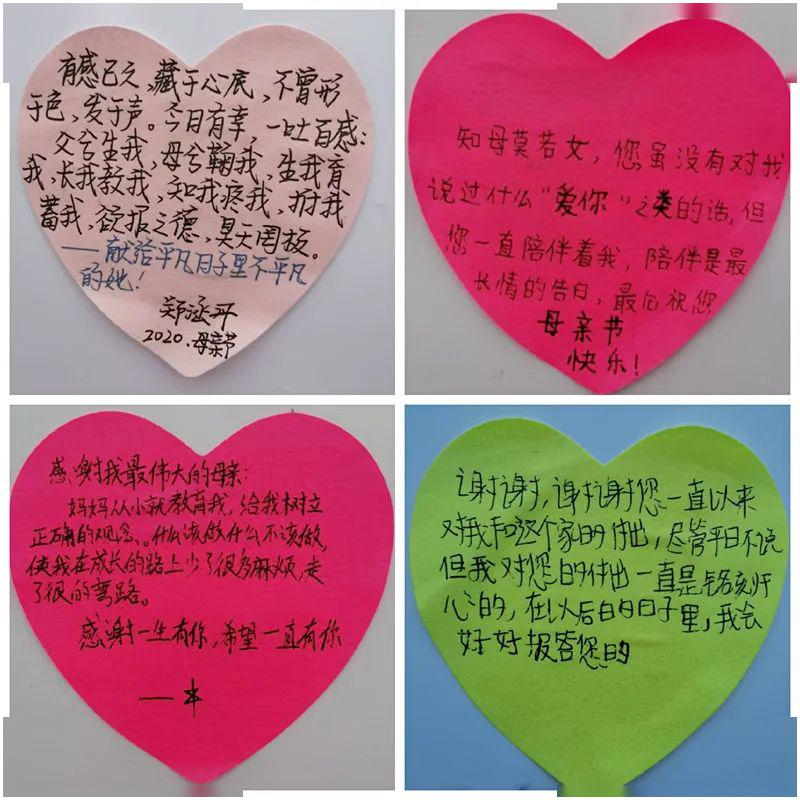 有感已久，藏于心底，不曾形
于色，发于声。今日有幸，一吐百感：
父兮生我，母兮鞠我，生我育
我，长我教我，知我疼我，拊我
蓄我，欲报之德，昊天罔极。
——献给平凡日子里不平凡
的她！
郑丞开
2020.母亲节
知母莫若女，您虽没有对我
说过什么“爱你”之类的话，但
您一直陪伴着我，陪伴是最
长情的告白，最后祝您
母亲节
快乐！
感谢我最伟大的母亲：
妈妈从小就教育我，给我树立
正确的观念、。什么该做什么不该做，
使我在成长的路上少了很多麻烦，走
了很的弯路。
感谢一生有你，希望一直有你
——本
谢谢，谢谢您一直以来
对我和这个家的付出，尽管平日不说
但我对您的付出一直是铭刻于
心的，在以后的日子里，我会
好好报答您的